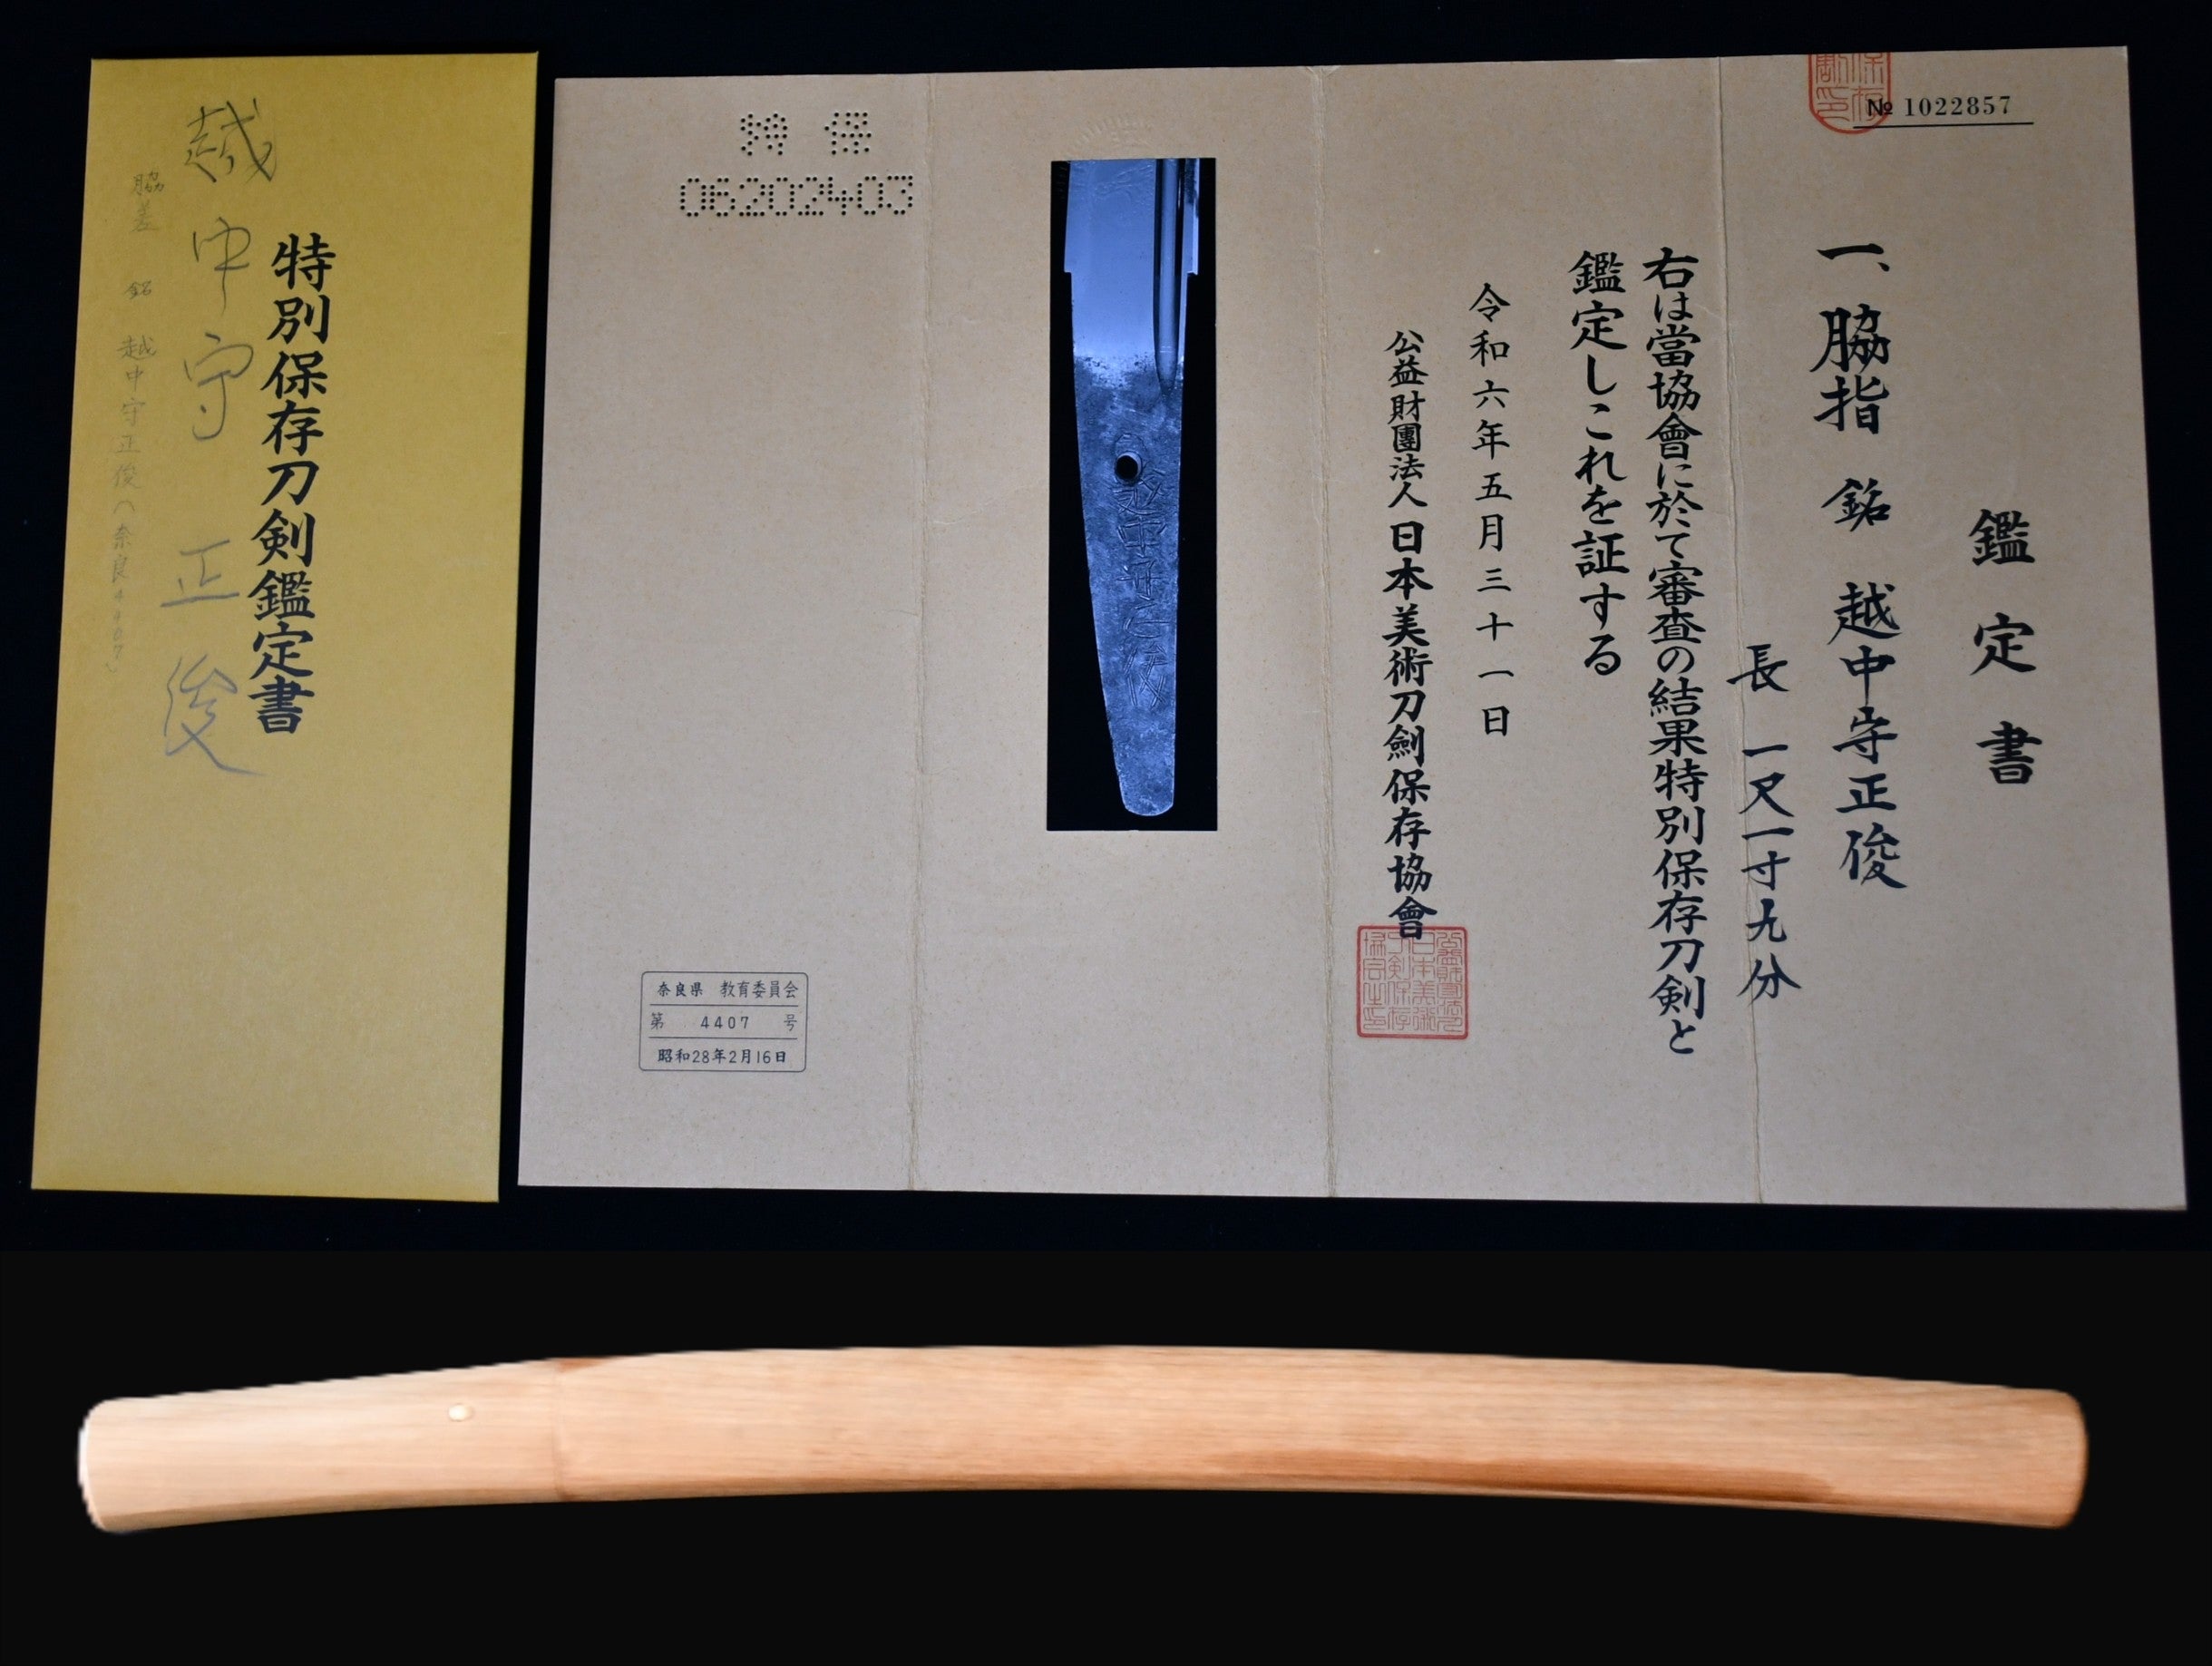 特別保存刀剣鑑定書
越中守 正俊
脇差 銘 越中守正俊(奈良4407)
№ 1022857
鑑定書
一、脇指 銘 越中守正俊
長 一尺一寸九分
右は當協會に於て審査の結果特別保存刀剣と
鑑定しこれを証する
令和六年五月三十一日
公益財團法人日本美術刀劍保存協會
越中守正俊
特 保
06202403
奈良県 教育委員会
第 4407 号
昭和28年2月16日